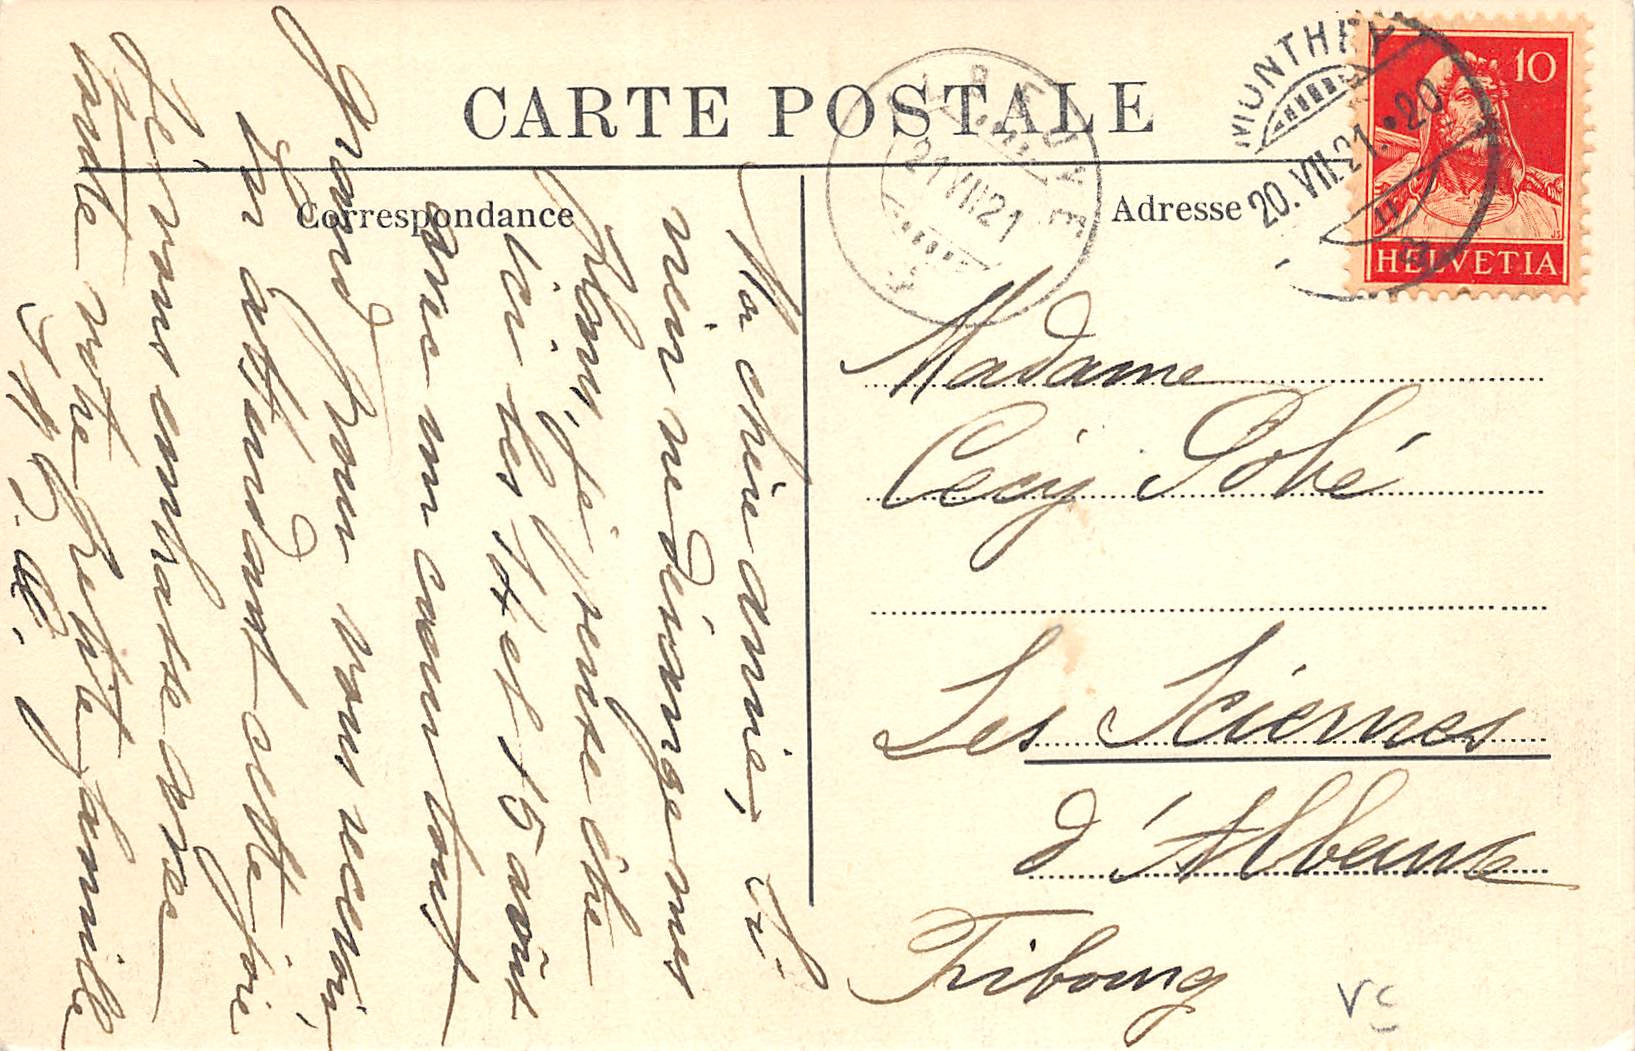 CARTE POSTALE
Correspondance
Adresse
10
HELVETIA
MONTHEY
20.VII.21.•20
21 VII 21
Ma chère amie, si
rien ne dérange mes
plans, je pense être
ici les 14 et 15 août
avec un cœur tout
grand pour vous recevoir,
En attendant cette joie
je vous embrasse avec
toute votre petite famille
Madame
Cécy Sobé
Les Sciernes
d'Albeuve
Fribourg
VC